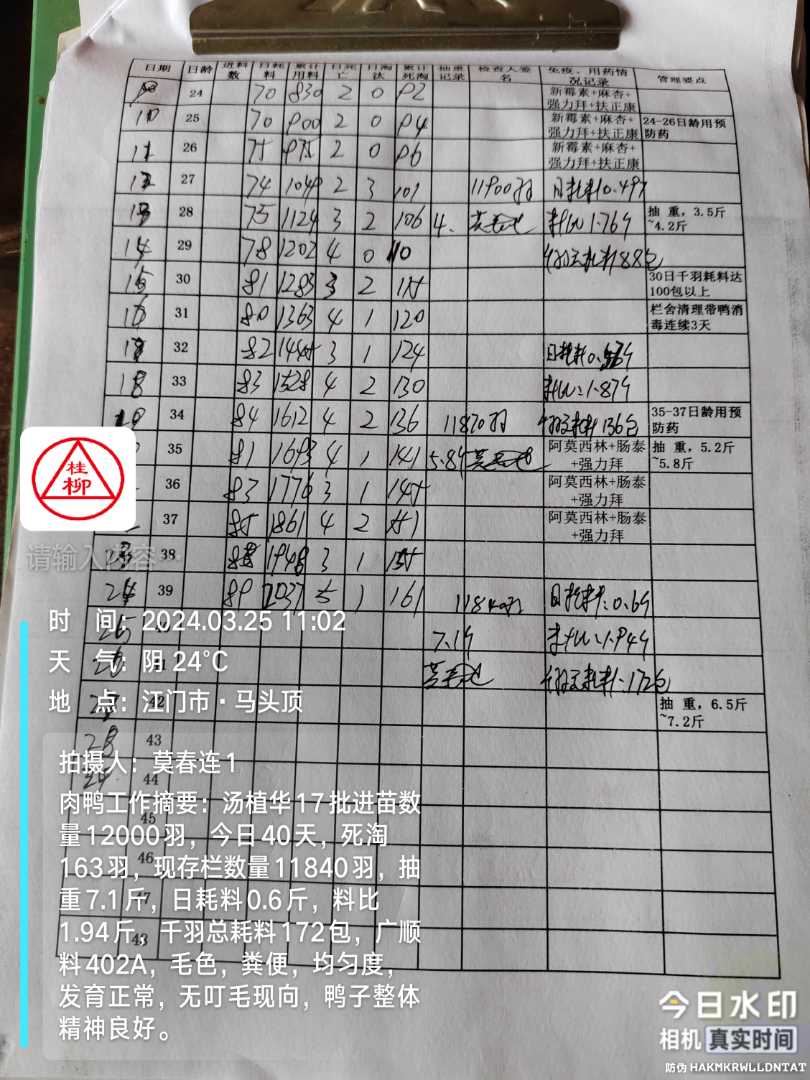 日期 日龄 进料数 日耗料 累计用料 日死亡 日淘汰 累计死淘 抽重记录 检查人签名 免疫、用药情况记录 管理要点
24 70 830 2 0 92 新霉素+麻杏+强力拜+扶正康
10 25 70 900 2 0 94 新霉素+麻杏+强力拜+扶正康 24-26日龄用预防药
11 26 75 975 2 0 96 新霉素+麻杏+强力拜+扶正康
12 27 74 1049 2 3 101 11900羽 日耗料0.49斤
13 28 75 1124 3 2 106 4. 料比1.76斤 抽重,3.5斤~4.2斤
14 29 78 1202 4 0 110 千羽总耗料88包
15 30 81 1283 3 2 115 30日千羽耗料达100包以上
16 31 80 1363 4 1 120 栏舍清理带鸭消毒连续3天
32 82 1445 3 1 124 日耗料0.
18 33 83 1528 4 2 130 料比:1.87斤
34 84 1612 4 2 136 11870羽 千羽总耗料136包 35-37日龄用预防药
35 81 1693 4 1 141 5.8斤 阿莫西林+肠泰+强力拜 抽重,5.2斤~5.8斤
36 83 1776 3 1 145 阿莫西林+肠泰+强力拜
37 85 1861 4 2 151 阿莫西林+肠泰+强力拜
38 1948 3 1 155
24 39 89 2037 5 1 161 11840羽 日耗料:0.6斤
25 7.1斤 料比:1.94斤
26 41 千羽总耗料:172包
42 抽重,6.5斤~7.2斤
28 43
44
45
46
47
48
桂柳
请输入内容…
时 间:2024.03.25 11:02
天 气:阴 24℃
地 点:江门市·马头顶
拍摄人:莫春连1
肉鸭工作摘要:汤植华17批进苗数
量12000羽,今日40天,死淘
163羽,现存栏数量11840羽,抽
重7.1斤,日耗料0.6斤,料比
1.94斤,千羽总耗料172包,广顺
料402A,毛色,粪便,均匀度,
发育正常,无叮毛现向,鸭子整体
精神良好。
今日水印
相机 真实时间
防伪 HAKMKRWLLDNTAT